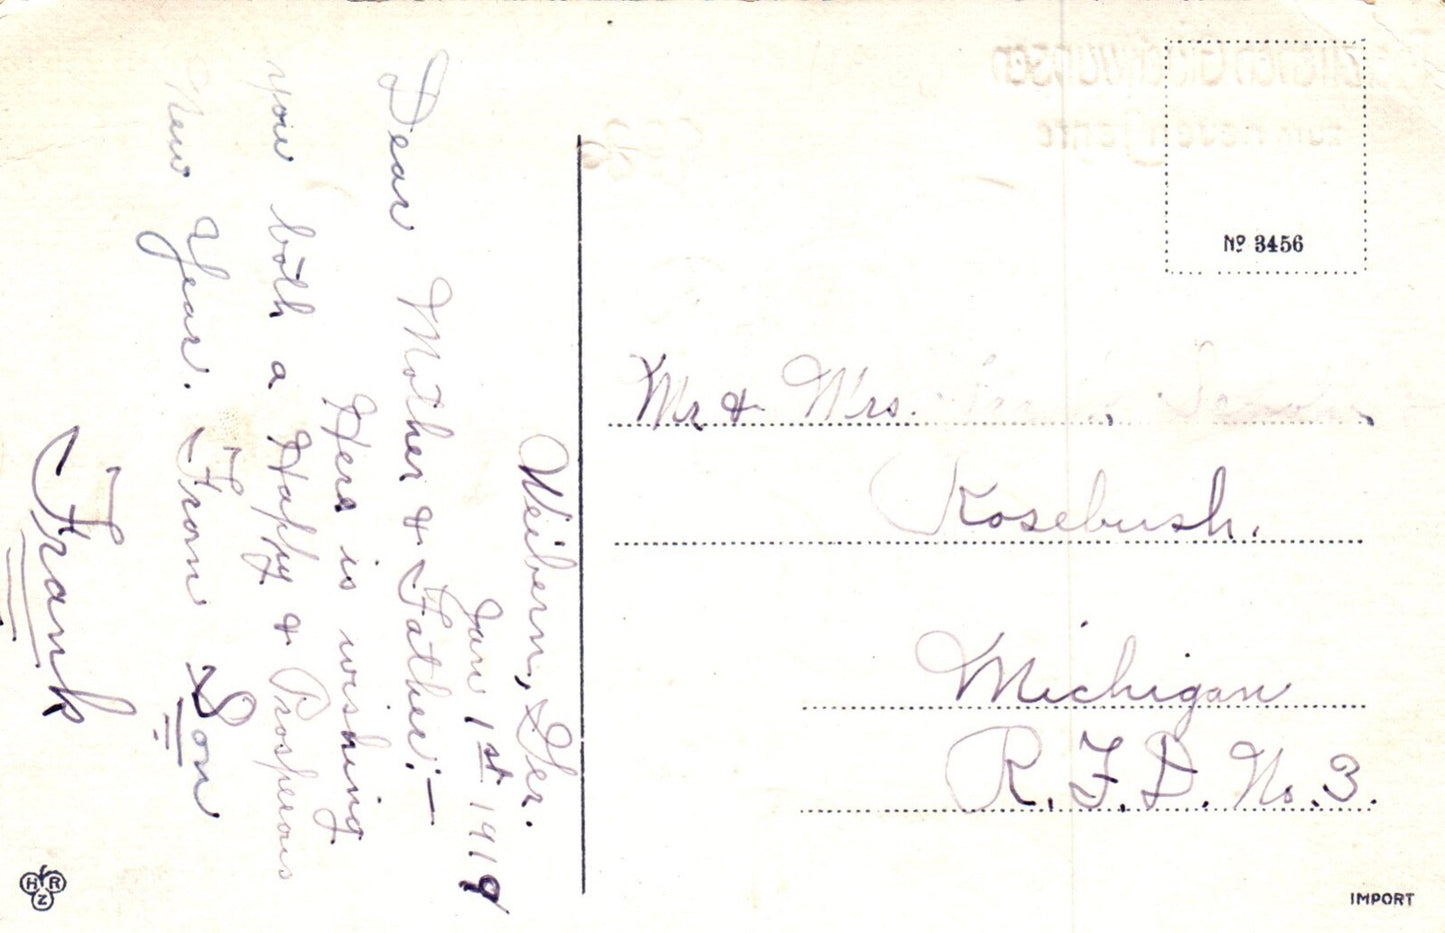 Weibern, Ger.
Jan 1st 1919
Dear Mother & Father:—
Here is wishing
you both a Happy & Prosperous
New Year. From Son
Frank
Nº 3456
Mr & Mrs.
Rosebush.
Michigan
R.F.D. No. 3.
HRZ
IMPORT